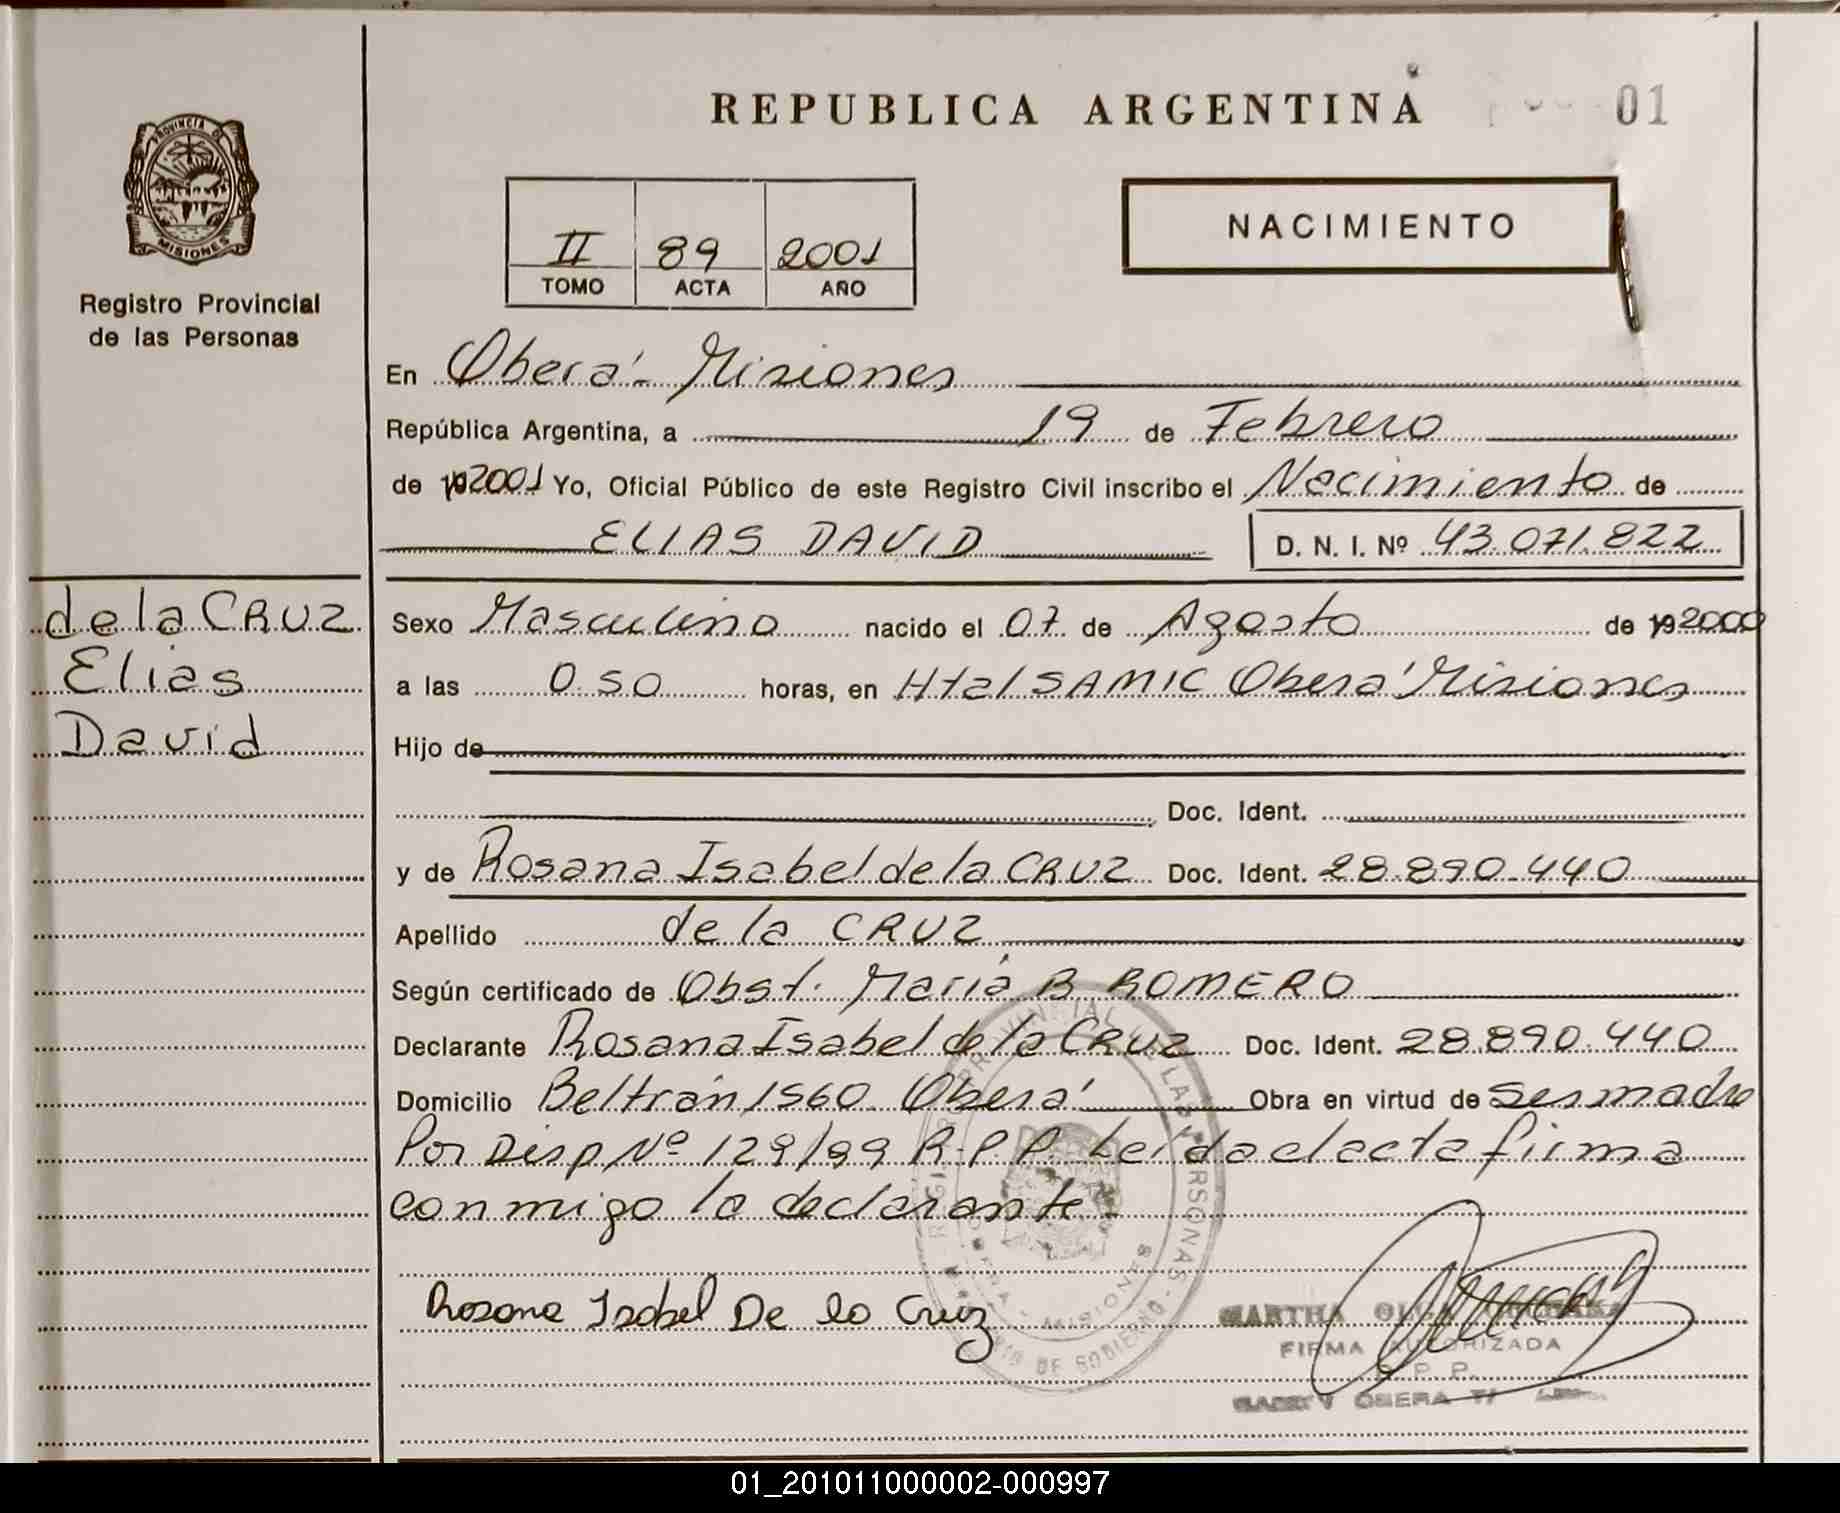 REPUBLICA ARGENTINA
01
PROVINCIA D
MISIONES
Registro Provincial
de las Personas
II 89 2001
TOMO ACTA AÑO
NACIMIENTO
En Oberá - Misiones
República Argentina, a 19 de Febrero
de 19 2001 Yo, Oficial Público de este Registro Civil inscribo el Nacimiento de
ELIAS DAVID D. N. I. Nº 43.071.822
de la CRUZ
Elias
David
Sexo Masculino nacido el 07 de Agosto de 19 2000
a las 0.50 horas, en Htal SAMIC Oberá Misiones
Hijo de
Doc. Ident.
y de Rosana Isabel de la CRUZ Doc. Ident. 28.890.440
Apellido de la CRUZ
Según certificado de Obst. María B ROMERO
Declarante Rosana Isabel de la CRUZ Doc. Ident. 28.890.440
Domicilio Beltrán 1560 Oberá Obra en virtud de ser madre
Por Disp Nº 129/99 R.P.P. Leída el acta firma
conmigo la declarante
Rosana Isabel De la Cruz
MARTHA OLGA
FIRMA AUTORIZADA
R. P. P.
OBERA
PROVINCIAL LAS PERSONAS
MISIONES
DE GOBIERNO
01_201011000002-000997